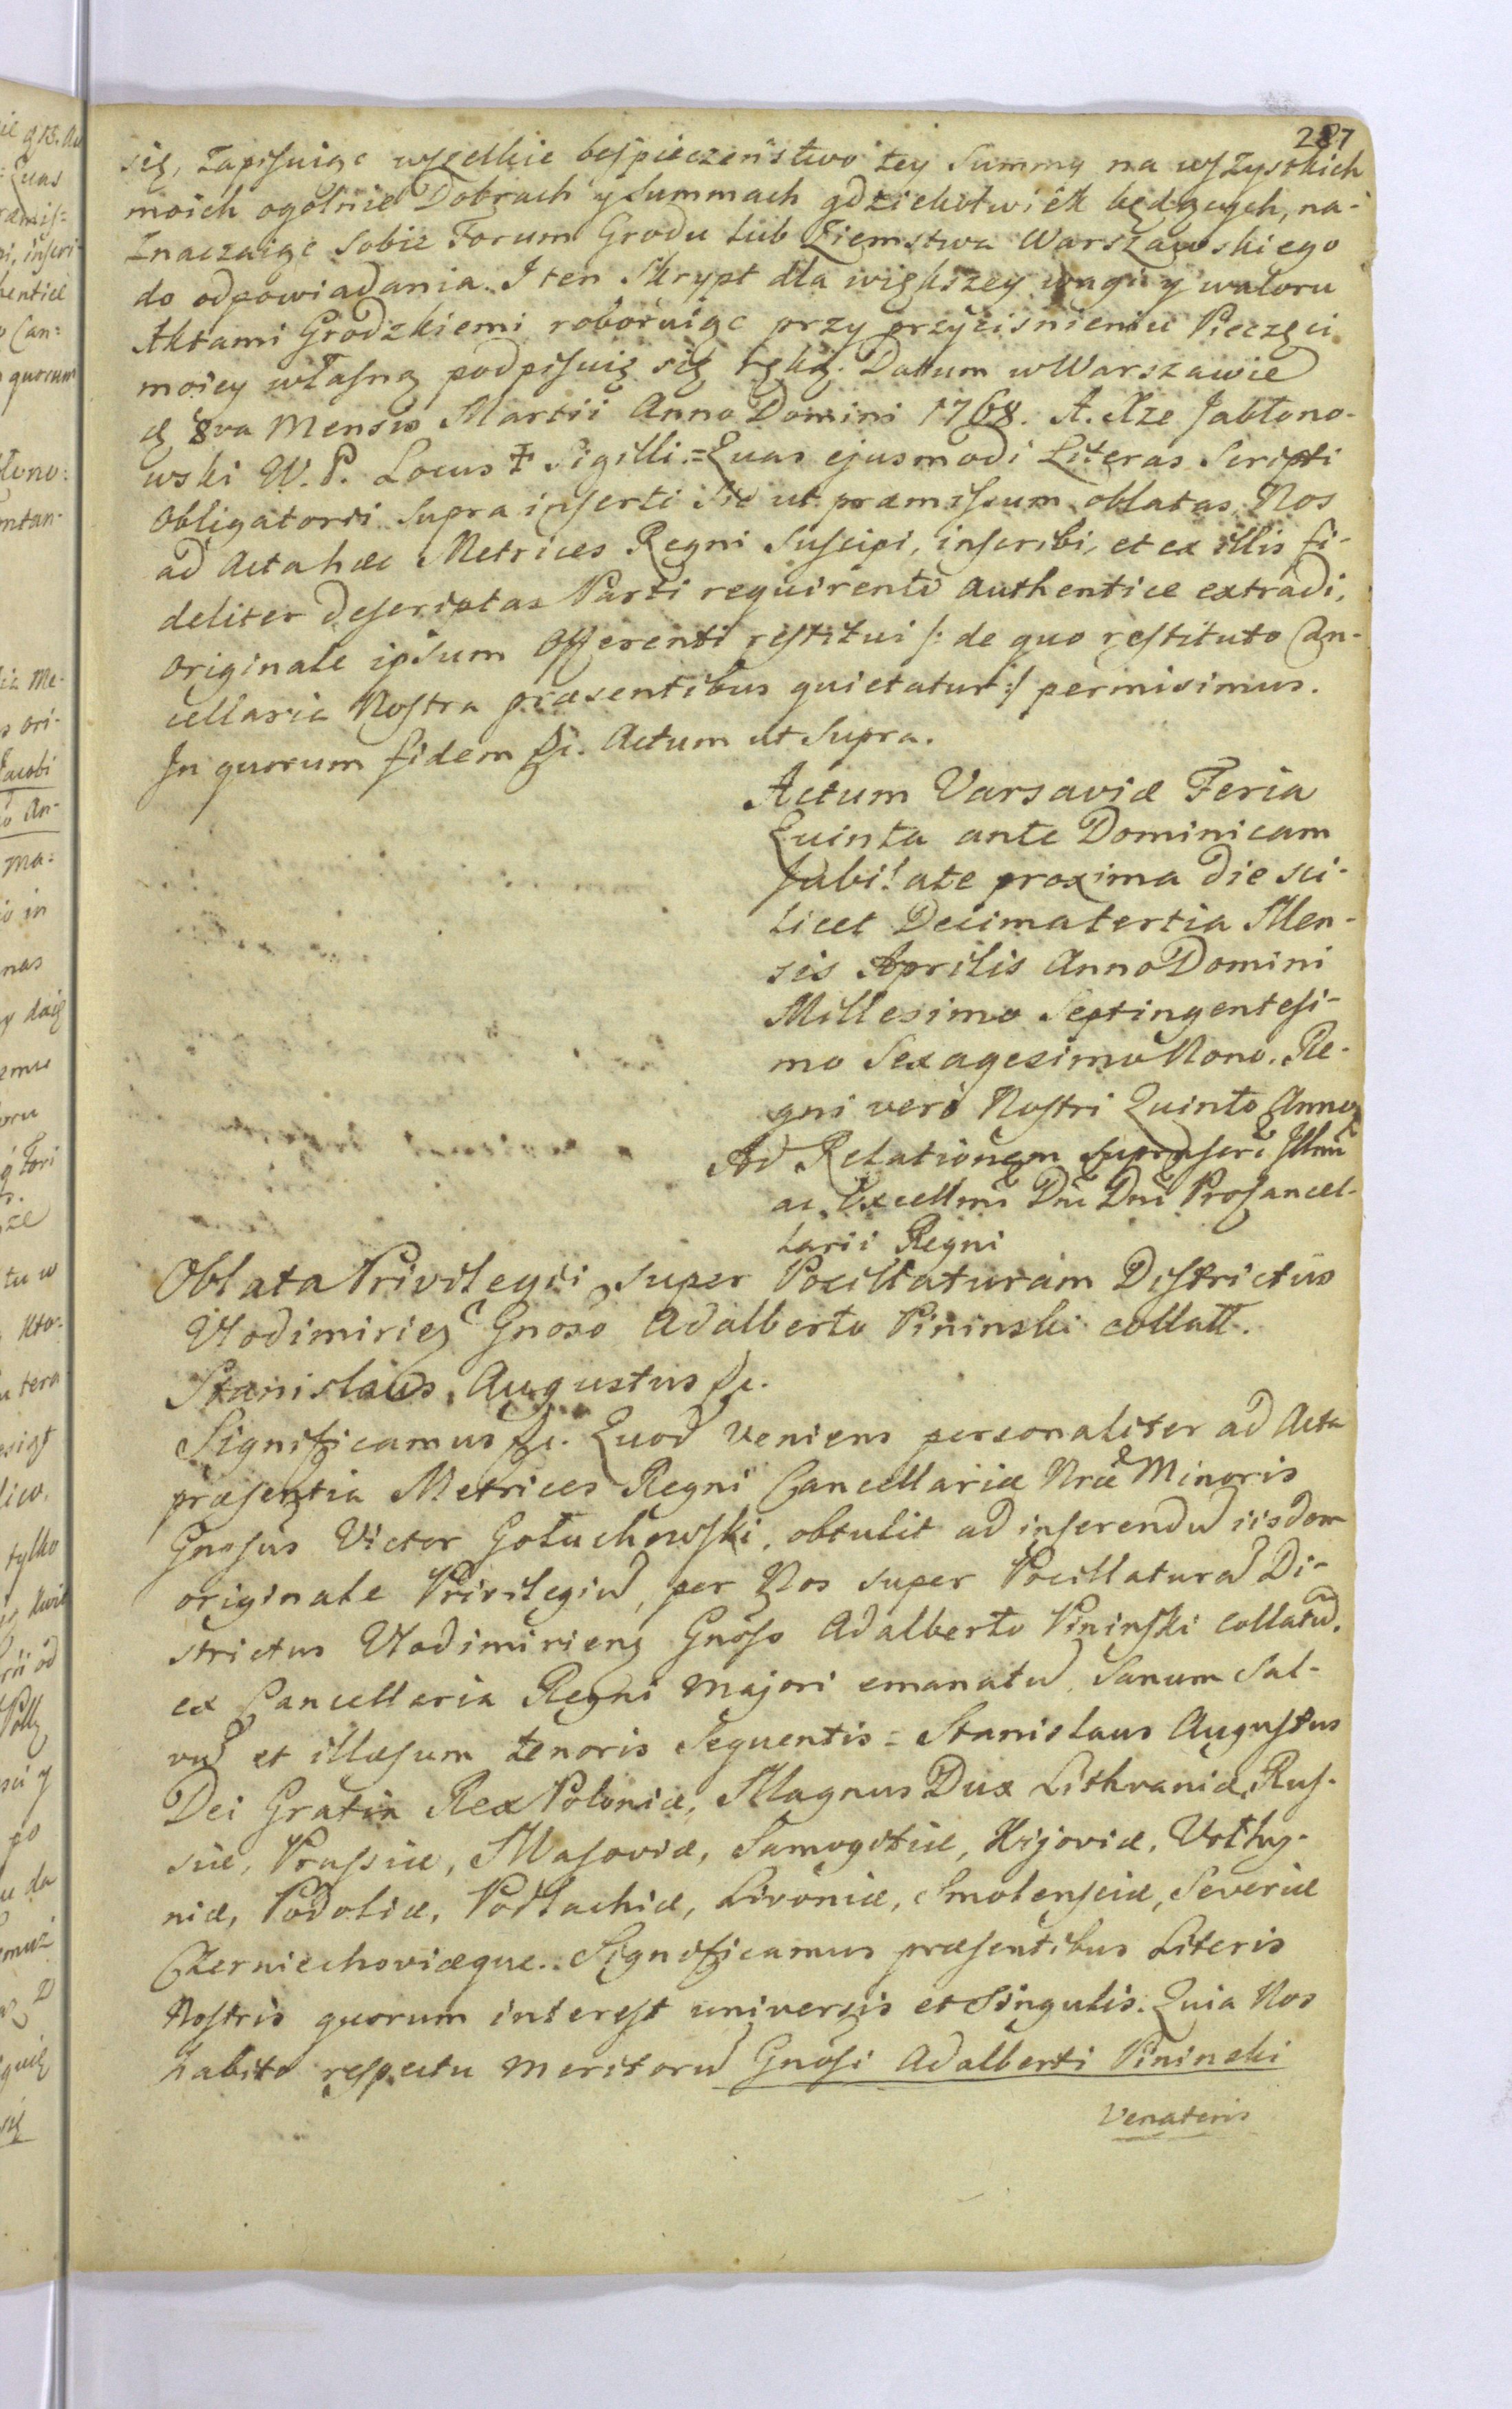 287
się, zapisuiąc wszelkie bespieczeństwo tey Summy na wszystkich
moich ogolnie Dobrach y Summach gdziekolwiek będących, na-
znaczaiąc Sobie Forum Grodu lub Ziemstwa Warszawskiego
do odpowiadania. I ten Skrypt dla większey wagi y waloru
Aktami Grodzkiemi roboruiąc przy przyciśnieniu Pieczęci
moiey własną podpisuię się ręką. Datum w Warszawie
d 8va Mensis Martii Anno Domini 1768. A. Xze Jabłono-
wski W. P. Locus ‡ Sigilli.=Quas ejusmodi Literas Scripti
Obligatorii Supra inserti Sic ut præmissum oblatas Nos
ad Acta hæc Metrices Regni Suscipi, inscribi, et ex illis fi-
deliter descriptas Parti requirenti authentice extradi,
Originale ipsum Offerenti restitui /: de quo restituto Can-
cellaria Nostra præsentibus quietatur :/ permisimus.
In quorum fidem &c. Actum ut Supra.
Actum Varsaviæ Feria
Quinta ante Dominicam
Jubilate proxima die sci-
licet Decimatertia Men-
sis Aprilis Anno Domini
Millesimo Septingentesi-
mo Sexagesimo Nono. Re-
gni vero Nostri Quinto Anno
Ad Relationem Illmi
ac Excellmi Dni Dni Procancel-
larii Regni
Oblata Privilegii Super Pocillaturam Districtus
Vlodimirien Gnoso Adalberto Pininski collati.
Stanislaus Augustus &c.
Significamus &c. Quod veniens personaliter ad Acta
præsentia Metrices Regni Cancellariæ Nræ Minoris
Gnosus Victor Gołuchowski, obtulit ad inserendu iisdem
originale Privilegiu, per Nos super Pocillatura Di-
strictus Vlodimirien Gnoso Adalberto Pininski collatu,
ex Cancellaria Regni Majori emanatu, Sanum Sal-
vu et illæsum tenoris Sequentis = Stanislaus Augustus
Dei Gratia Rex Poloniæ, Magnus Dux Lithvaniæ, Rus-
siæ, Prussiæ, Masoviæ, Samogitiæ, Kijoviæ, Volhy-
niæ, Podoliæ, Podlachiæ, Livoniæ, Smolensciæ, Severiæ
Czerniechoviæque. Significamus præsentibus Literis
Nostris quorum interest universis et Singulis. Quia Nos
habito respectu meritoru Gnosi Adalberti Pininski
Venatoris